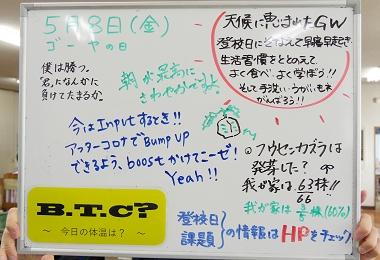 5月8日(金)
ゴーヤの日
僕は勝つ。
君になんかに
負けてたまるか。
朝が最高に
さわやかです。
天候に恵まれたGW
登校日にそなえて早寝早起き
生活習慣をととのえて
よく食べ、よく学ぼう!!
そして手洗い・うがいも
がんばろう!!
今はInputするとき!!
アフターコロナでBump UP
できるよう、boostかけてこーぜ!
Yeah!!
フウセンカズラは
発芽した?
我が家は63/66株!!
我が家は3/5株(60%)
B.T.C?
~ 今日の体温は? ~
登校日
課題
の情報はHPをチェック